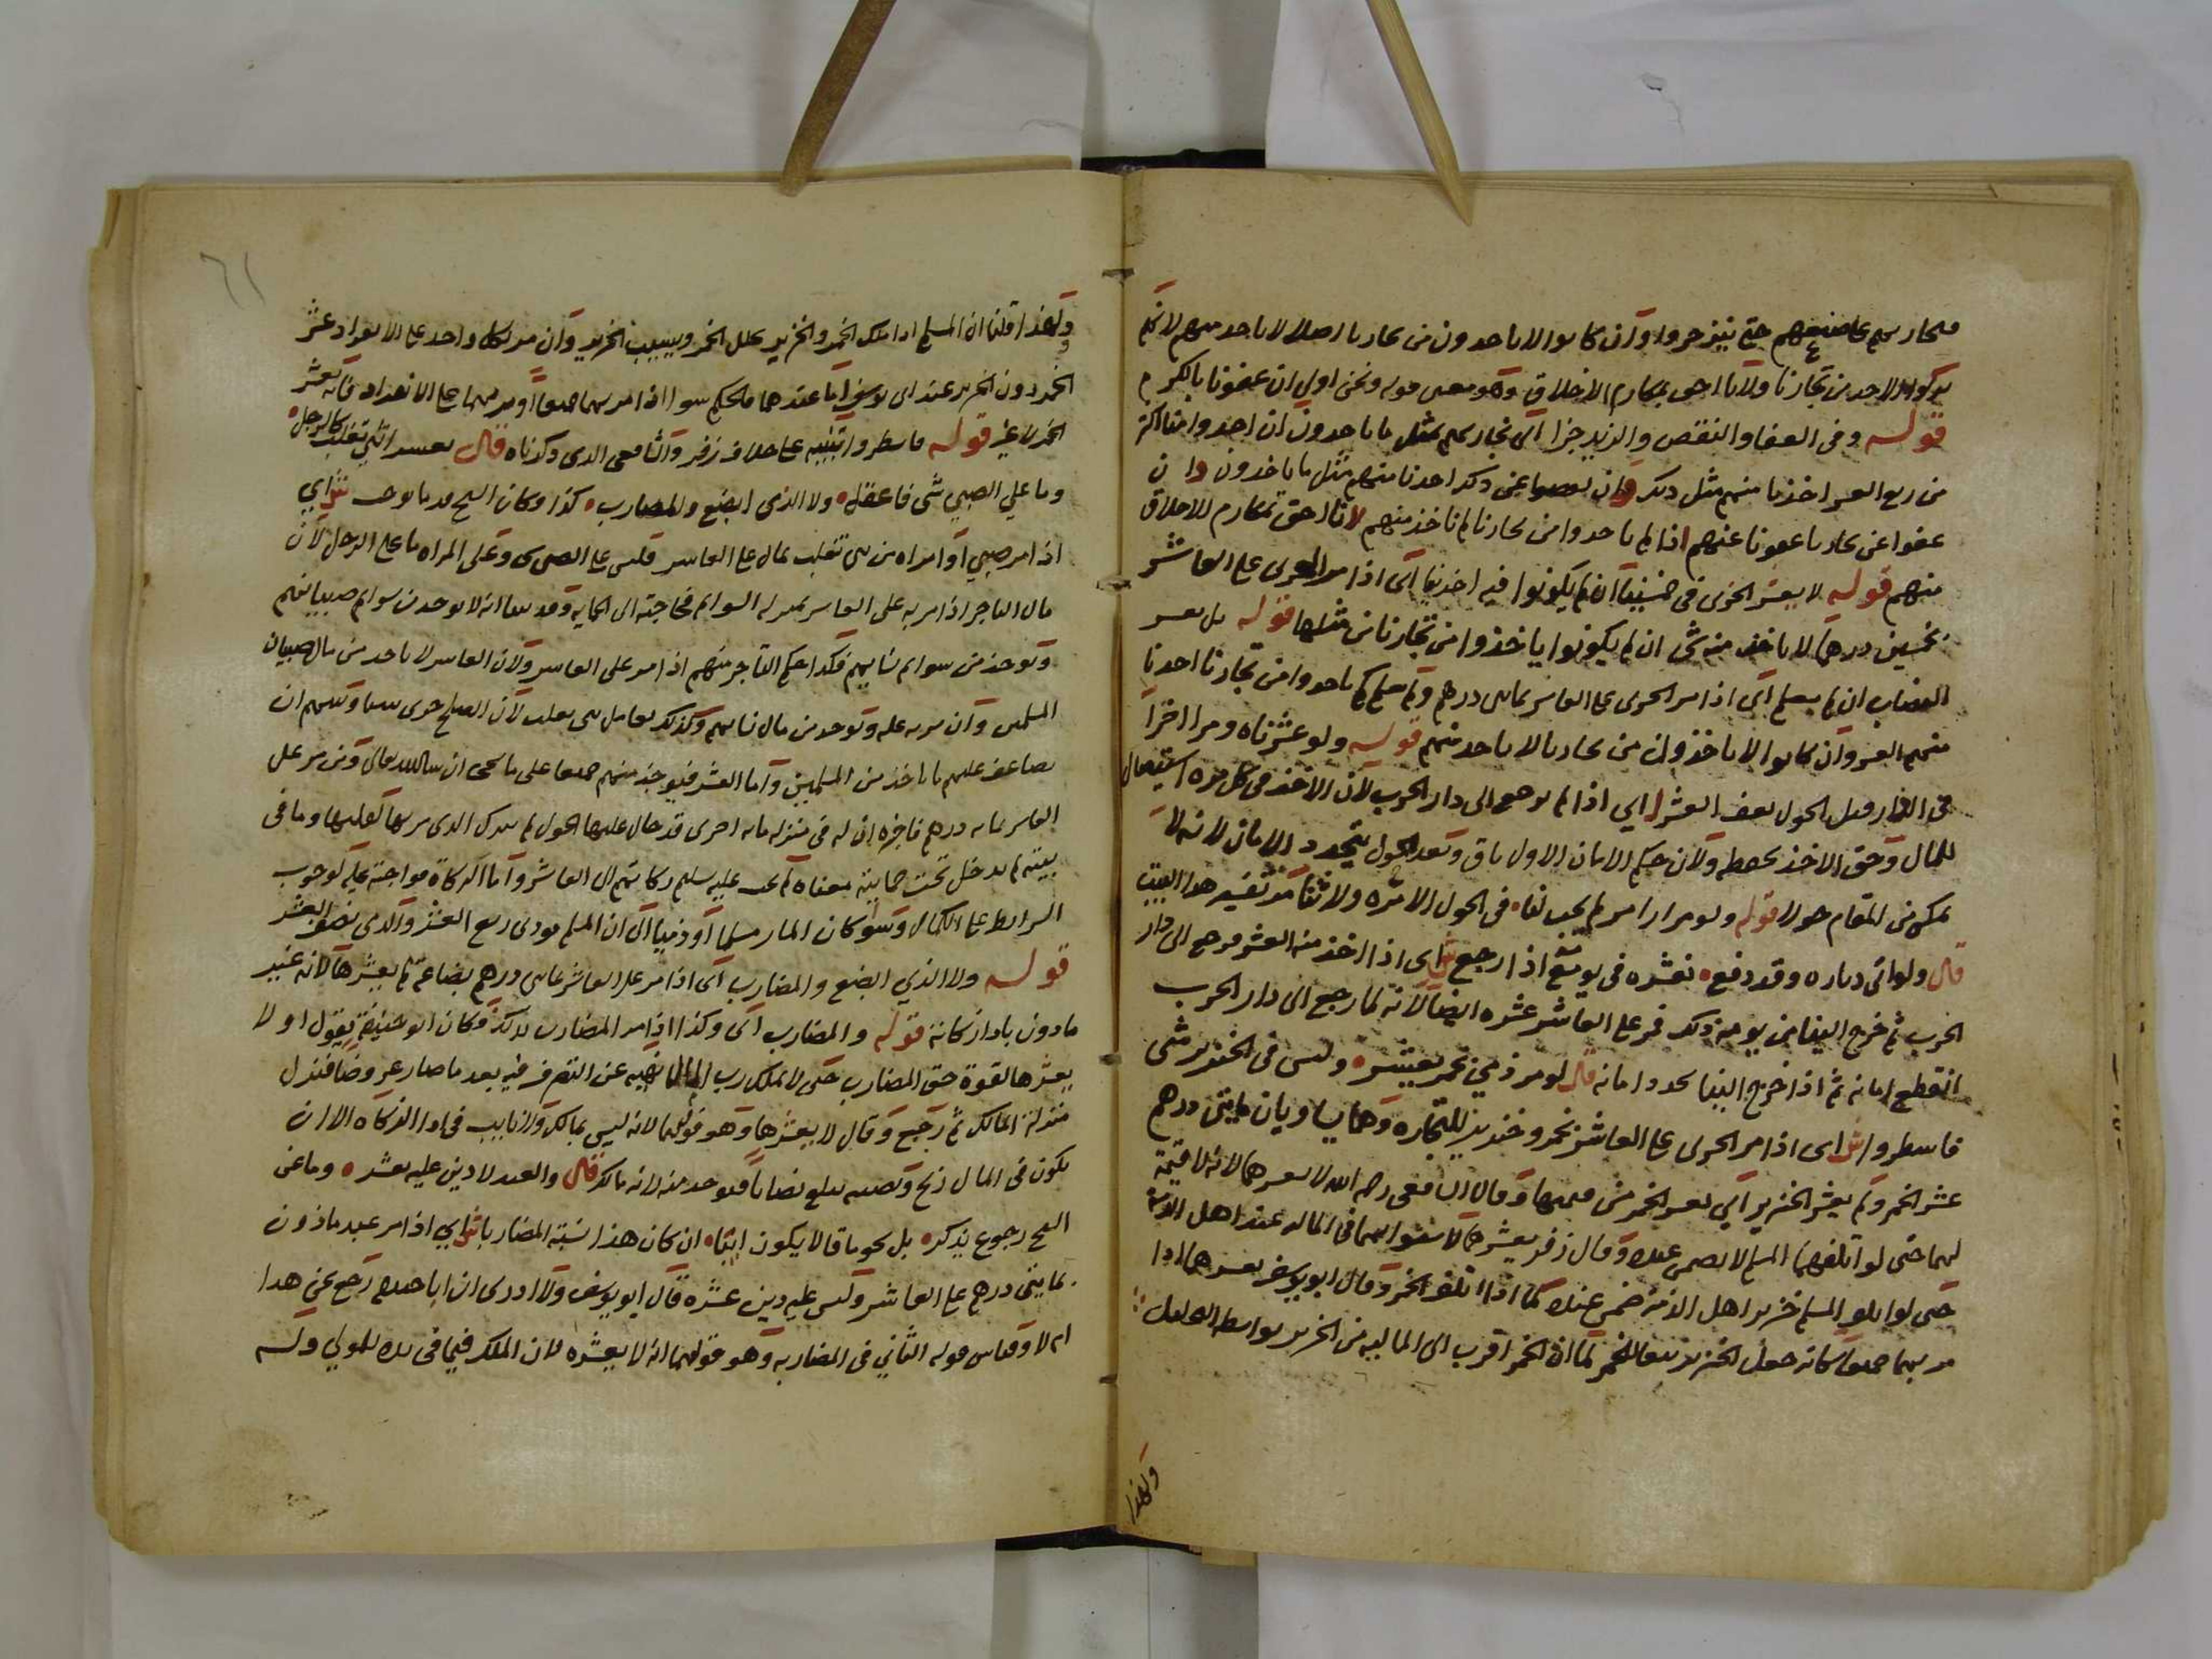 فيجازيهم على صنيعهم حتى ينزجروا وان كانوا لا ياخدون من تجارنا اصلا لا ناخد منهم لانهم
تركوا الاخد من تجارنا ولانا احق بمكارم الاخلاق وهو معنى قوله ونحن اولى ان عفونا بالكرم
قوله وفى العفا والنقص والزيد جزا اى نجازيهم بمثل ما ياخدون ان اخدوا منا اكثر
من ربع العشر اخذنا منهم مثل ذلك وان نقصوا عن ذلك اخدنا منهم مثل ما ياخذون وان
عفوا عن تجارنا عفونا عنهم اذا لم ياخدوا من تجارنا لم ناخذ منهم لانا احق بمكارم الاخلاق
منهم قوله لا يعشر الحربى فى خمسينا ان لم يكونوا فيه اخذينا اى اذا مر الحربى على العاشر
بخمسين درهما لا ياخذ منه شى ان لم يكونوا ياخذوا من تجارنا من مثلها قوله بل يعشر
النصاب ان لم يعلم اى اذا مر الحربى على العاشر بمايتى درهم ولم نعلم كم ياخدوا من تجارنا اخدنا
منهم العشر وان كانوا لا ياخذون من تجارنا لا ناخد منهم قوله ولو عشرناه ومرا اخرا
فى الدار وقبل الحول يعف العشرا اى اذا لم يرجع الى دار الحرب لان الاخذ فى كل مرة استيصال
للمال وحق الاخذ لحفظه ولان حكم الامان الاول باق وبعد الحول يتجدد الامان لانه لا
يمكن من المقام حولا قوله ولو مرارا مر لم يجب لنا فى الحول الا مرة ولا ثنا مر تفسير هذا البيت
قال ولو اتى دياره وقد دفع نعشره فى يومه اذا رجع ش اى اذا اخذ منه العشر فرجع الى دار
الحرب ثم خرج الينا من يومه ذلك فمر على العاشر عشره ايضا لانه لما رجع الى دار الحرب
انقطع امانه ثم اذا خرج الينا تجدد امانه قال لو مر ذمى بخمر يعتشر وليس فى الخنزير شى
فاسطروا ش اى اذا مر الحربى على العاشر بخمر وخنزير للتجارة وهما يساويان مايتى درهم
عشر الخمر ولم يعشر الخنزير اى يعشر الخمر من قيمتها وقال الشافعى رحمه الله لا يعشرهما لانه لا قيمة
لهما حتى لو اتلفهما المسلم لا يضمن عنده وقال زفر يعشرهما لاستوايهما فى المالية عند اهل الذمة
حتى لو اتلف المسلم خنزير اهل الذمة ضمن عنده كما اذا اتلف الخمر وقال ابو يوسف يعشرهما اذا
مر بهما جميعا كانه جعل الخنزير تبعا للخمر لما ان الخمر اقرب الى المالية من الخنزير بواسطة التحليل
ولهذا
٦١
ولهذا قلنا ان المسلم اذا ملك الخمر والخنزير يخلل الخمر ويسيب الخنزير وان مر بكل واحد على الانفراد عشر
الخمر دون الخنزير عند ابى يوسف اما عندهما فالحكم سوا اذا مر بهما جميعا او مر بهما على الانفراد فانه يعشر
الخمر لا غير قوله فاسطروا تنبيه على خلاف زفر والشافعى الذى ذكرناه قال نعشر انثى تغلب كالرجل
وما على الصبى شى فاعقل ولا الذى ابضع والمضارب كذا وكان الشيخ قدما يوجب ش اى
اذا مر صبى او امراة من بنى تغلب بمال على العاشر فليس على الصبى شى وعلى المراة ما على الرجل لان
مال التاجر اذا مر به على العاشر بمنزلة السوائم لحاجته الى الحماية وقد بينا انه لا يوخد من سوائم صبيانهم
وتوخد من سوائم نسايهم فكذا حكم التاجر منهم اذا مر على العاشر ولان العاشر لا ياخد من مال صبيان
المسلمين وان مر به عليه وتوخد من مال نسايهم وكذلك نعامل بنى تغلب لان الصلح جرى بيننا وبينهم ان
يضاعف عليهم ما ياخذ من المسلمين واما العشر فيوخذ منهم جميعا على ما يجى ان شا الله تعالى ومن مر على
العاشر بماية درهم فاخبره ان له فى منزله ماية اخرى قد حال عليها الحول لم يزك الذى مر بها لقلتها وما فى
بيته لم يدخل تحت حمايته معناه لم يجب عليه تسليم زكاتهم الى العاشر واما الزكاة فواجبة عليه لوجوب
الشرايط على الكمال وسوا كان المار مسلما او ذميا الا ان المسلم يودى ربع العشر والذمى نصف العشر
قوله ولا الذى ابضع والمضارب اى اذا مر على العاشر بمايتى درهم بضاعة لم يعشرها لانه غير
مادون باداء زكاته قوله والمضارب اى وكذا اذا مر المضارب بذلك وكان ابو حنيفة يقول اولا
يعشرها لقوة حق المضارب حتى لا يملك رب المال نهيه عن التصرف فيه بعد ما صار عروضا فنزل
منزلة المالك ثم رجع وقال لا يعشرها وهو قولهما لانه ليس بمالك ولا نايب فى اداء الزكاة الا ان
يكون فى المال ربح ونصيبه يبلغ نصابا فيوخد منه لانه مالك قال والعبد لا دين عليه يعشر وما عن
الشيخ رجوع يذكر بل نحو ما قالا يكون ايتا ان كان هذا نسبة المضاربا ش اى اذا مر عبد ماذون
بمايتى درهم على العاشر وليس عليه دين عشره قال ابو يوسف ولا ادرى ان ابا حنيفة رجع عن هذا
ام لا وقياس قوله الثانى فى المضاربة وهو قولهما انه لا يعشره لان الملك فيما فى يده للمولى وله